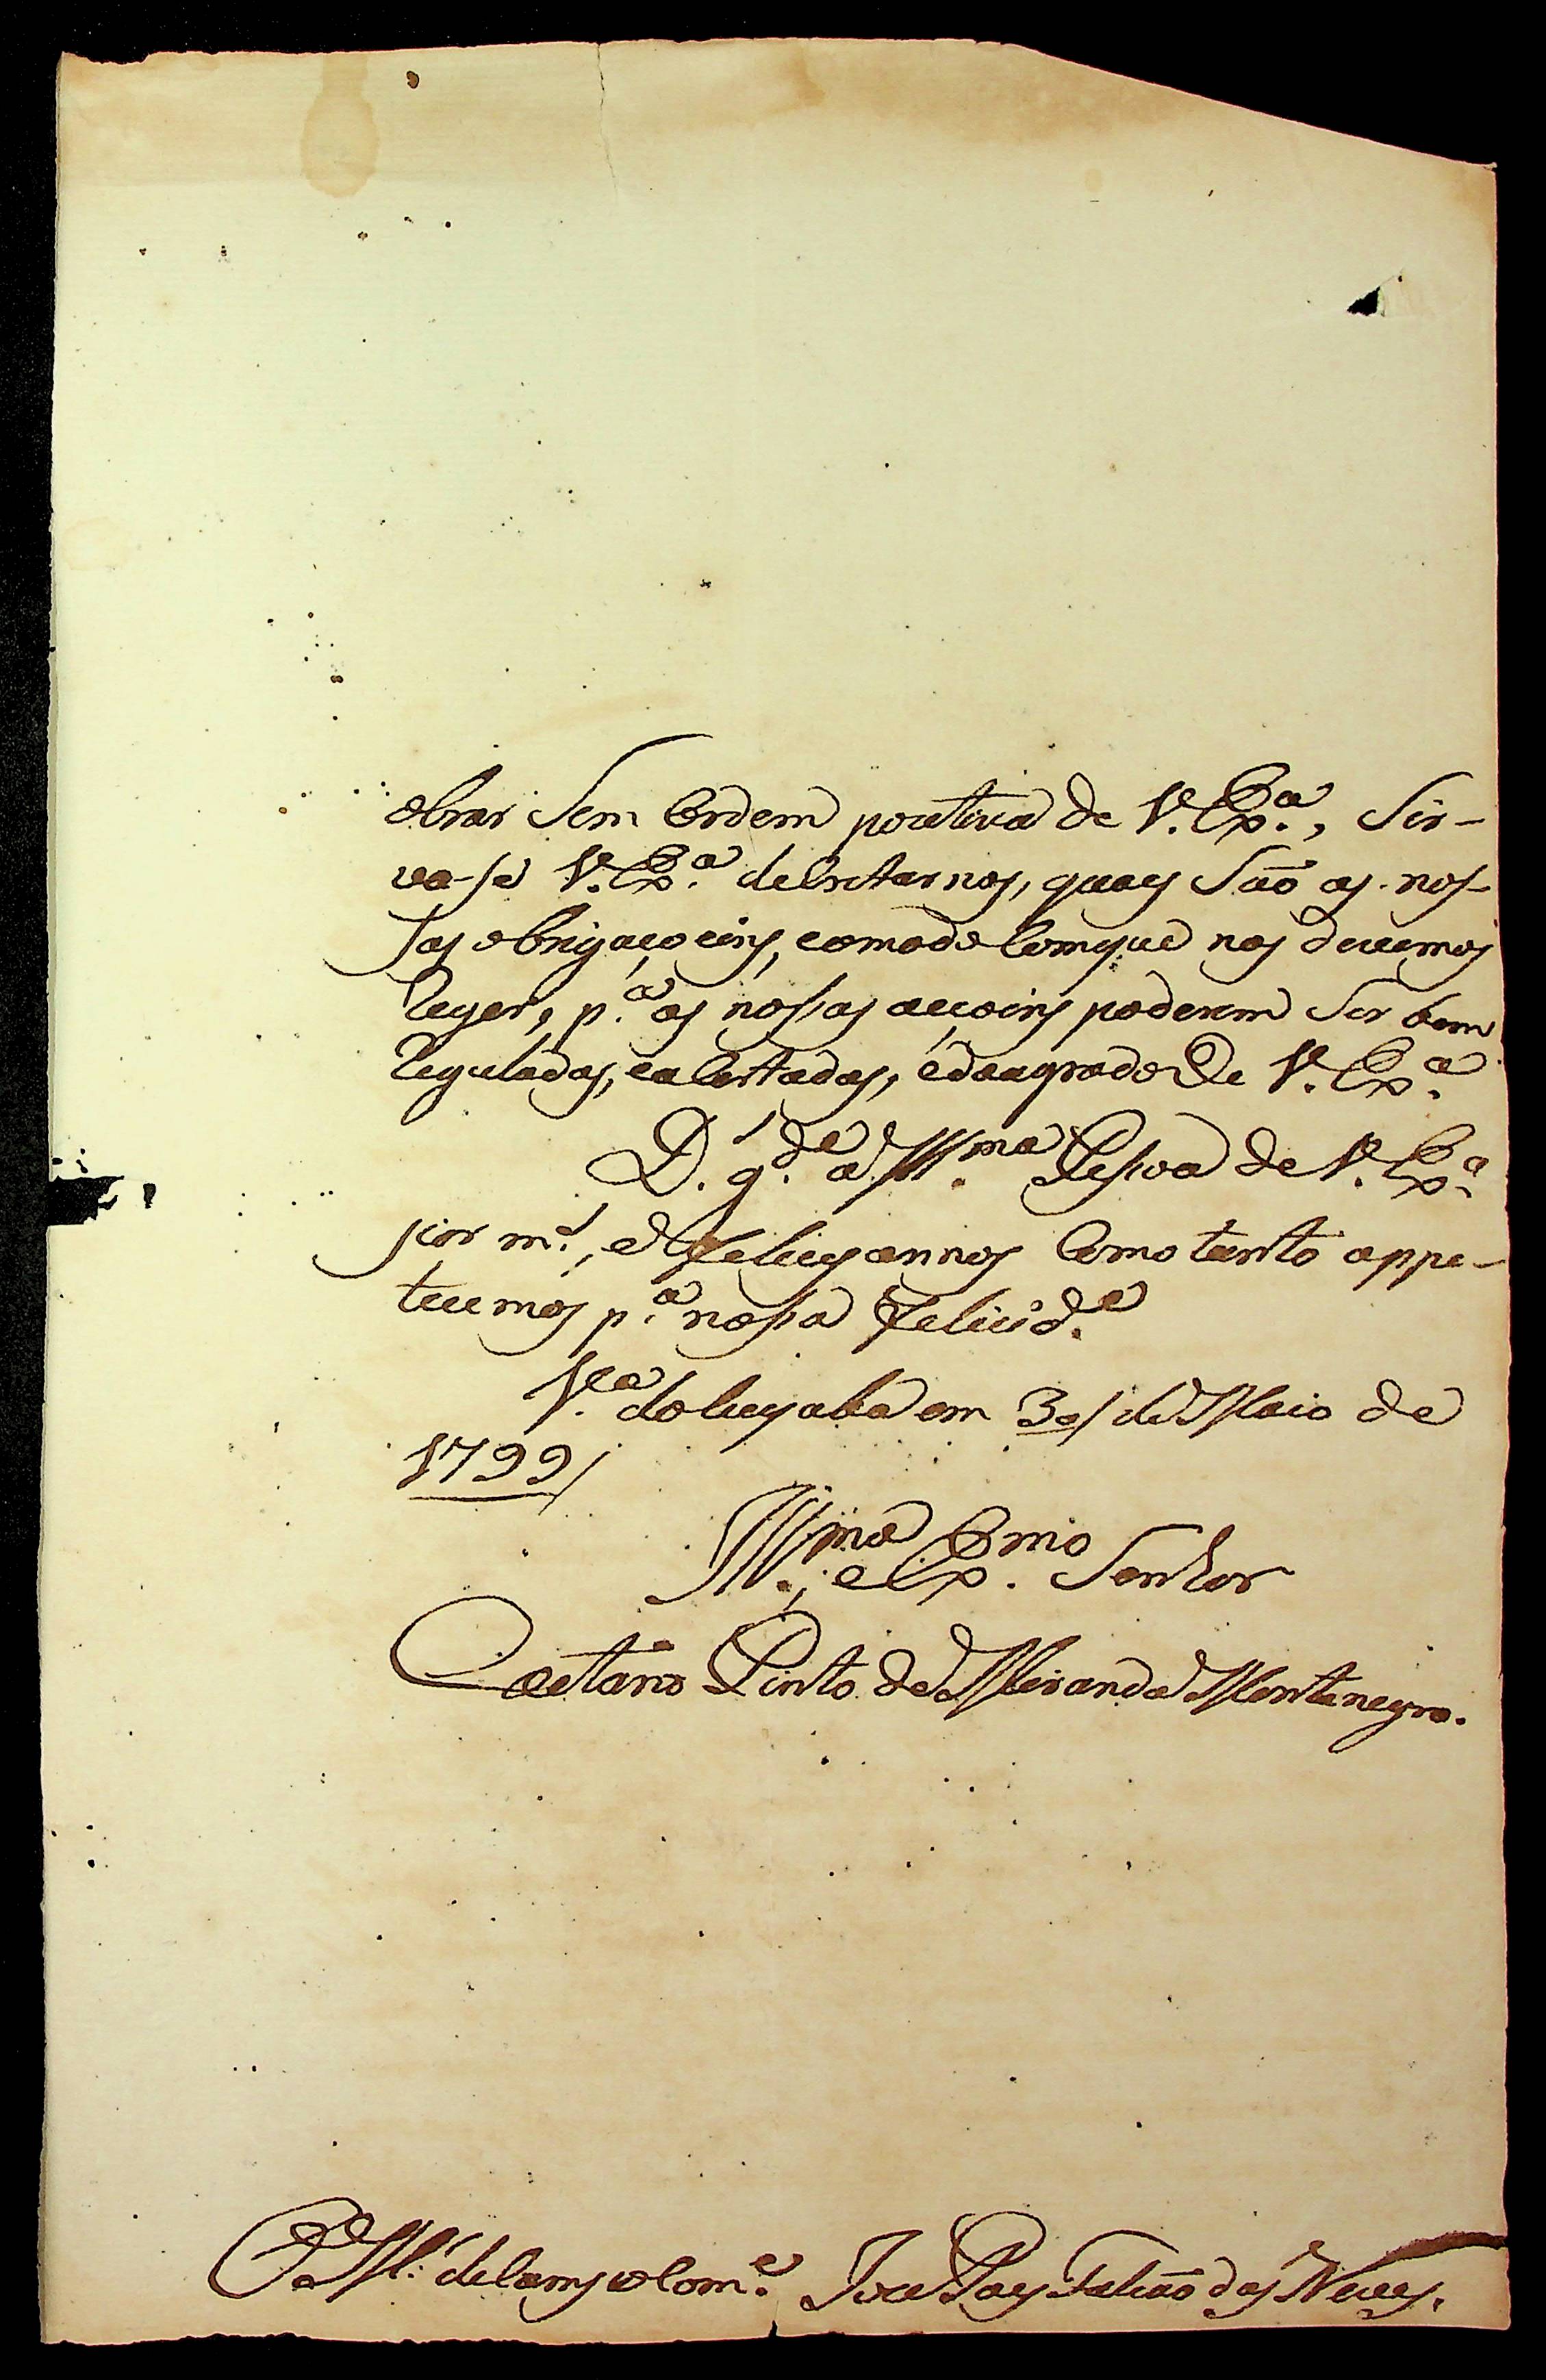 obrar Sem Ordem pozitiva de V. Ex.ª, Sir-
va-se V. Ex.ª decretarnos, quaes São as nos-
sas obrigaçoeins, eomodo Comque nos devemos
Reger, p.ª as nossas acçoeins poderem Ser bem
Reguladas, eaCertadas, edoagrado De V. Ex.ª
D. g.de a Ill.ma Pesoa de V. Ex.ª
por m.s, e Felices annos Como tanto appe-
tecemos p.ª nossa Felicid.e
V.ª doCuyaba em 30/ de Maio de
1799/
Ill.mo, e Ex.mo Senhor
Caetano Pinto de Miranda Montenegro.
O M. deCamp. eCom.e Joze Paes Falcão das Neves.